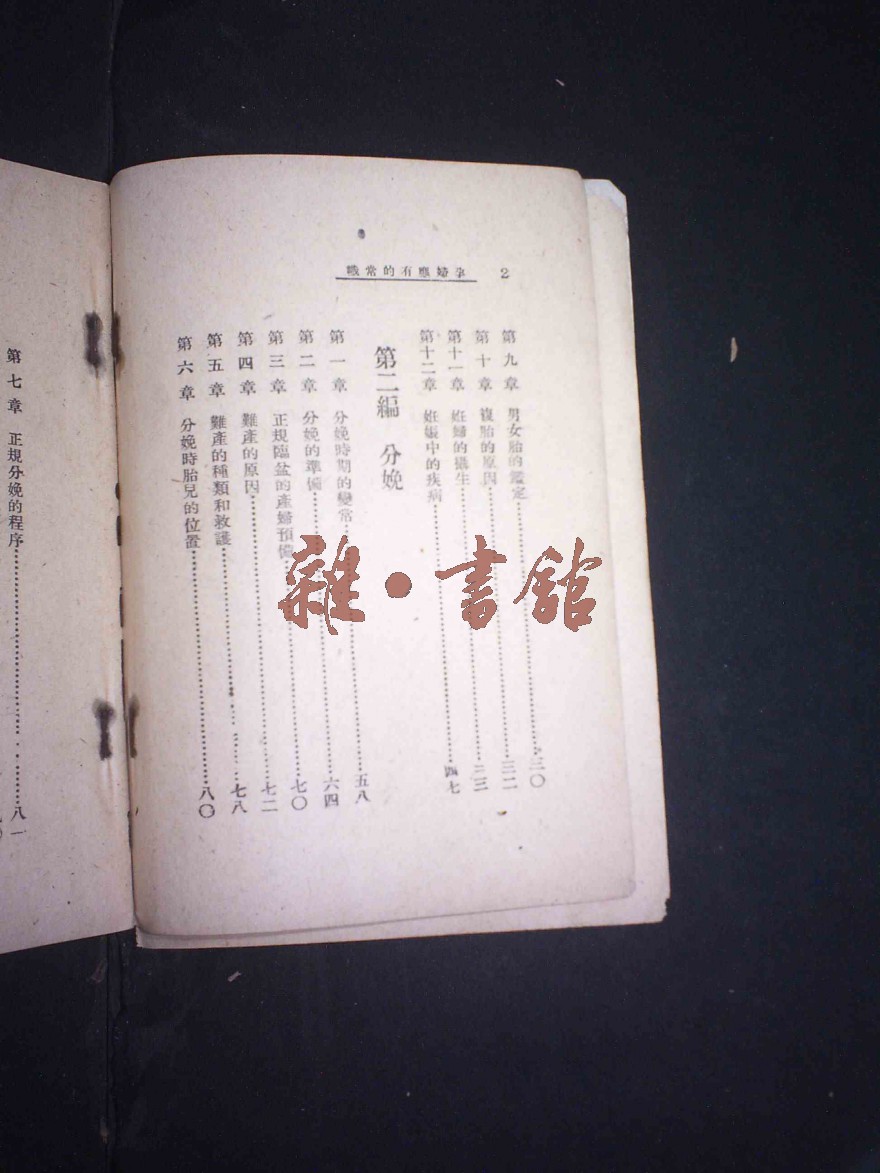 2 孕婦應有的常識
第九章 男女胎的鑑定……三〇
第十章 複胎的原因……三二
第十一章 妊婦的攝生……三三
第十二章 妊娠中的疾病……四七
第二編 分娩
第一章 分娩時期的變常……五八
第二章 分娩的準備……六四
第三章 正規臨盆的產婦預備……七〇
第四章 難產的原因……七二
第五章 難產的種類和救護……七八
第六章 分娩時胎兒的位置……八〇
第七章 正規分娩的程序……八一
雜•書館